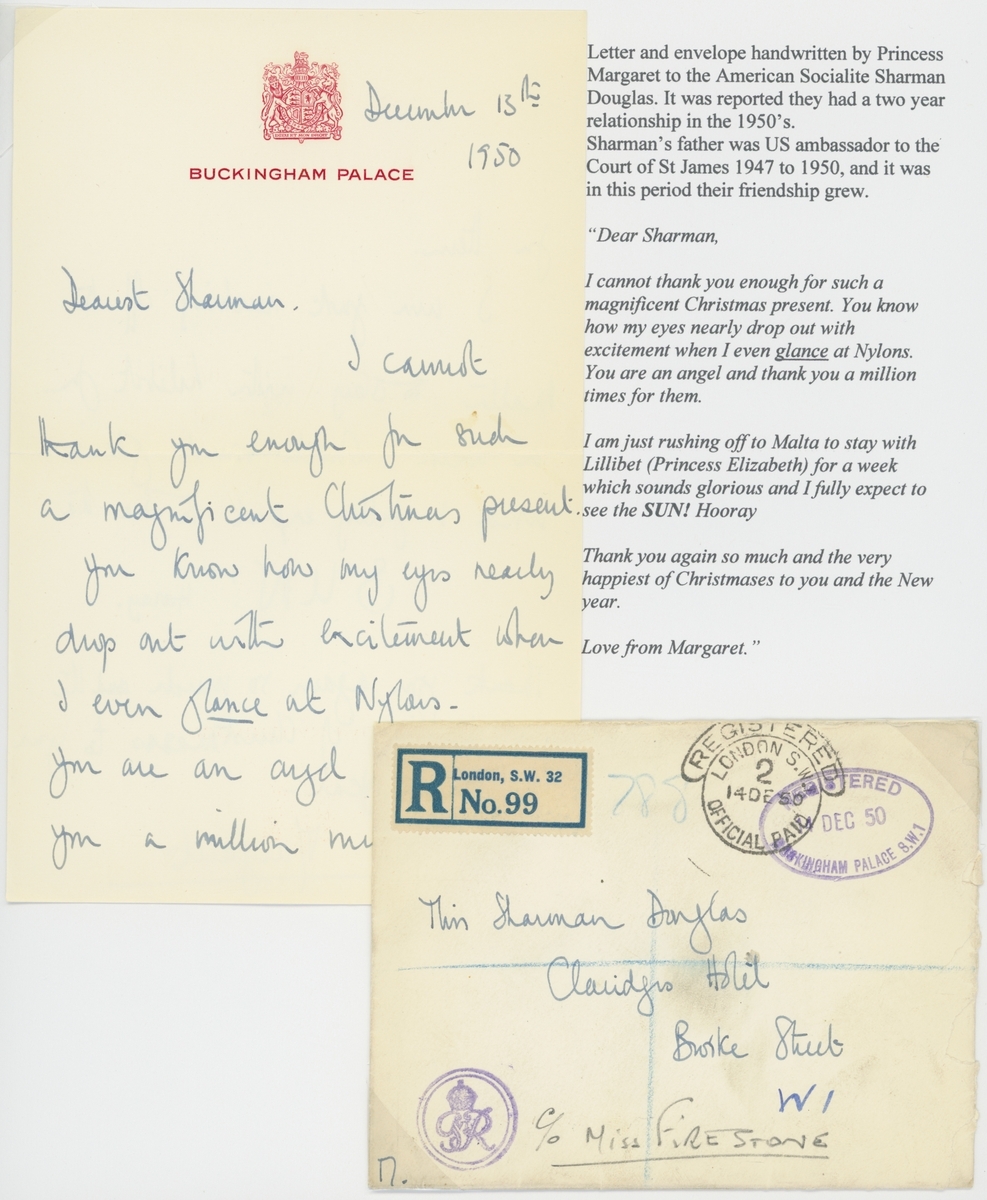 December 13th
1950
BUCKINGHAM PALACE
Dearest Sharman.
I cannot
thank you enough for such
a magnificent Christmas present.
you know how my eyes nearly
drop out with excitement when
I even glance at Nylons-
you are an angel
you a million
Letter and envelope handwritten by Princess
Margaret to the American Socialite Sharman
Douglas. It was reported they had a two year
relationship in the 1950's.
Sharman's father was US ambassador to the
Court of St James 1947 to 1950, and it was
in this period their friendship grew.
“Dear Sharman,
I cannot thank you enough for such a
magnificent Christmas present. You know
how my eyes nearly drop out with
excitement when I even glance at Nylons.
You are an angel and thank you a million
times for them.
I am just rushing off to Malta to stay with
Lillibet (Princess Elizabeth) for a week
which sounds glorious and I fully expect to
see the SUN! Hooray
Thank you again so much and the very
happiest of Christmases to you and the New
year.
Love from Margaret.”
R
London, S.W. 32
No. 99
788
REGISTERED
LONDON S.W.
2
14 DE 50
OFFICIAL PAID
DEC 50
BUCKINGHAM PALACE S.W.1
Miss Sharman Douglas
Claridges Hotel
Brooke Street
W1
c/o MISS FIRESTONE
GR
M.